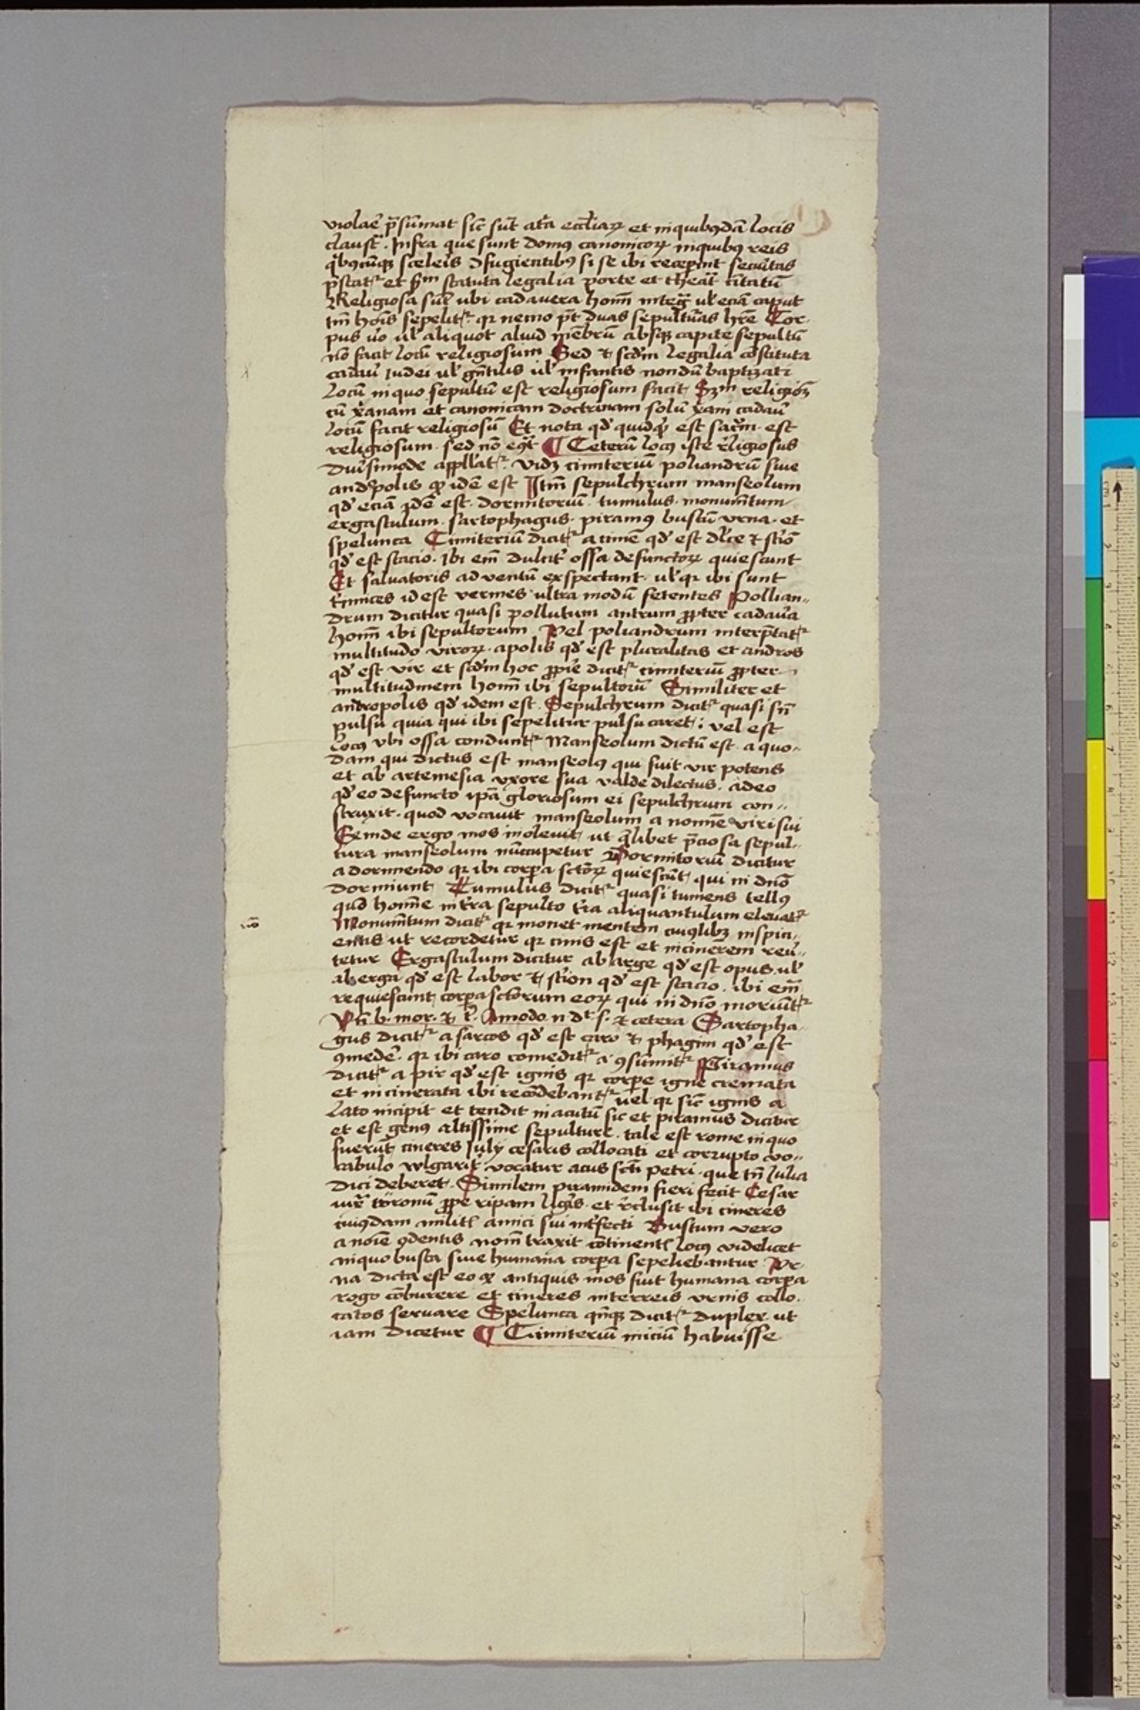 violae᷒ p̄sumat sic sūt at᷑a eccl̄iaꝝ et in quibꝯdā locis
claust᷑. Infra que sunt domꝯ canonicoꝝ in quibꝯ reis
qͥbꝯcūqꝫ sceleīs ꝯfugientibꝯ si se ibi recep̄int securitas
p̄stat᷑ et sm̄ statuta legalia porte et theat᷑ civitatū
Religiosa sūt ubi cadavera hom̄ integ᷑ ul̄ eciā caput
tm̄ hoīs sepelit᷑. qr nemo pt̄ duas sepultu᷑as hr̄e Cor-
pus v̊o ul̄ aliquot aliud mēbrū absqꝫ capite sepultū
nō facit locū religiosum Sed ⁊ scd̄m legalia cōstituta
cadav᷑ Iudei ul̄ gn̄tilis ul̄ infantis nondū baptizati
locū in quo sepultū est religiosum facit Sꝫm religiōꝫ
tn̄ xp̄ianam et canonicam doctrinam solū xp̄iani cadav᷑
locū facit religiosū Et nota qd̄ quidqͥd est sacᷓm. est
religiosum. sed nō eqͦt᷑ ¶ Ceterū locꝯ iste r᷑ligiosus
Div᷑simode appll̄at᷑. vidꝫ cimiteriū poliandrū sive
and᷑polis qͦ idē est Itm̄ sepulchrum manseolum
qd̄ eciā idē est. dormitoriū. tumulus. monumētum
ergastulum. sarcophagus. piramꝯ bustū vrna. et
spelunca Cimiteriū dicit᷑ a cimē qd̄ est dl̄ce ⁊ stiō
qd̄ est stacio. ibi em̄ dulcit᷑ ossa defunctoꝝ quiescunt
Et salvatoris adventū exspectant. ul̄ qr ibi sunt
cimices id est vermes ultra modū fetentes Pollian-
drum dicitur quasi pollutum antrum ꝓpter cadav᷑a
hom̄ ibi sepultorum Vel poliandrum interp̄tat᷑
multitudo viroꝝ. a polis qd̄ est pluralitas et andros
qd̄ est vir et scd̄m hoc ꝓpͥe dicit᷑ cimiteriū ꝓpter
multitudinem hom̄ ibi sepultorū Similiter et
antropolis qd̄ idem est. Sepulchrum dicit᷑ quasi sn̄
pulsu quia qui ibi sepelitur pulsu caret; vel est
locꝯ vbi ossa condunt᷑ Manseolum dictū est. a quo-
dam qui dictus est manseolꝯ qui fuit vir potens
et ab artemesia vxore sua valde dilectus. adeo
qd̄ eo defuncto ip̄a gloriosum ei sepulchrum con-
struxit. quod vocavit manseolum a nomīe viri sui
Exinde ergo mos inolevit ut qͥlibet p̄ciosa sepul-
tura manseolum nūcupetur Dormitoriū dicitur
a dormiendo qr ibi corp̄a sctōꝝ quiescūt qui in dn̄o
dormiunt Tumulus dicit᷑ quasi tumens tellꝯ
qn̄d homīe in tr̄ra sepulto tr̄a aliquantulum elevat᷑
Monumētum dicit᷑ qr monet mentem cuiꝯlibꝫ inspici-
entis ut recordetur qr cinis est et in cinerem rev᷑-
tetur Ergastulum dicitur ab arge qd̄ est opus ul̄
ab erga qd̄ est labor ⁊ stiōn qd̄ est stacio. ibi em̄
requiescunt corp̄a sctōrum eoꝝ qui in dn̄o moriūt᷑
Vn̄ b. mor. ⁊ c̄. Amodo n̄ dt̄ s. ⁊ cetera Sarcopha-
gus dicit᷑ a sarcos qd̄ est caro ⁊ phagim qd̄ est
ꝯmede᷑. qr ibi caro comedit᷑ a ꝯsumit᷑ Piramus
dicit᷑ a pir qd̄ est ignis qr corpe igne cremata
et incinerata ibi recōdebant᷑ vel qr sic ignis a
lato incipit et tendit in acutū sic et piramus dicitur
et est genꝯ altissime sepulture. tale est rome in quo
fuerūt cineres Iuly cesaris collocati et corrupto vo-
cabulo wlgarit᷑ vocatur acus scti petri. que tn̄ Iulia
dici deberet. Similem piramidem fieri fecit Cesar
iux᷑ tūronū ꝓpe ripam lig᷑is. et r᷑clusit ibi cineres
cuiꝯdam milit᷑ amici sui int᷑fecti Bustum vero
a noīe ꝯdentis nom̄ traxit cōtinent᷑ locꝯ videlicet
in quo busta sive humana corp̄a sepeliebantur Vr-
na dicta est eo qͦ antiquis mos fuit humana corp̄a
rogo cōburere et cineres in terreis vrnis collo-
catos servare Spelunca qn̄qꝫ dicit᷑ duplex ut
iam dicetur ¶ Cimiteriū iniciū habuisse